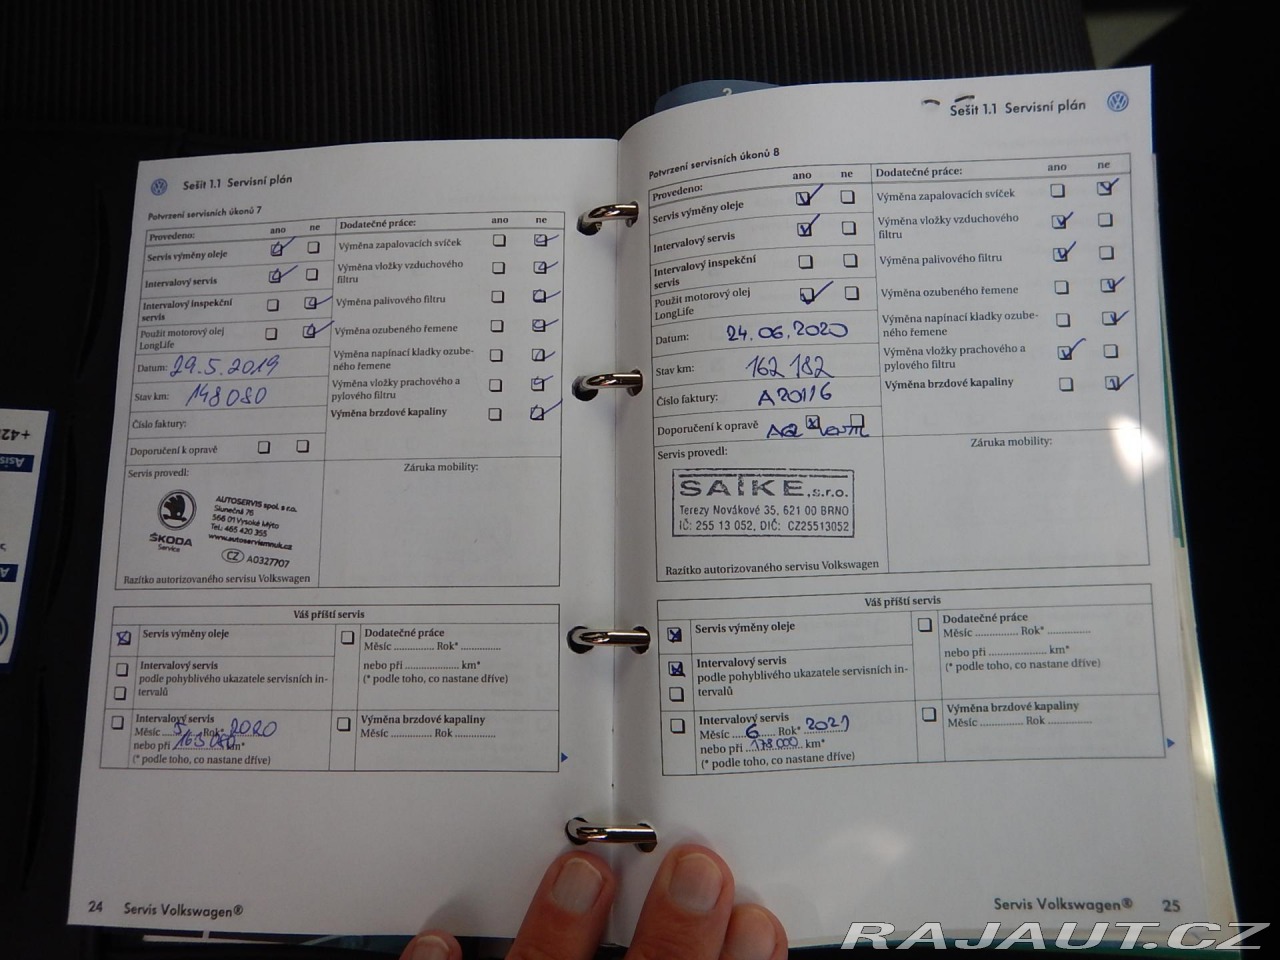 Sešit 1.1 Servisní plán
Potvrzení servisních úkonů 7
Provedeno: ano ne
Servis výměny oleje
Intervalový servis
Intervalový inspekční
servis
Použit motorový olej
LongLife
Datum: 29.5.2019
Stav km: 148080
Číslo faktury:
Doporučení k opravě
Servis provedl:
ŠKODA
Service
AUTOSERVIS spol. s r.o.
Slunečná 76
566 01 Vysoké Mýto
Tel.: 465 420 355
www.autoservismnuk.cz
CZ A0327707
Razítko autorizovaného servisu Volkswagen
Dodatečné práce: ano ne
Výměna zapalovacích svíček
Výměna vložky vzduchového
filtru
Výměna palivového filtru
Výměna ozubeného řemene
Výměna napínací kladky ozube-
ného řemene
Výměna vložky prachového a
pylového filtru
Výměna brzdové kapaliny
Záruka mobility:
Váš příští servis
Servis výměny oleje
Intervalový servis
podle pohyblivého ukazatele servisních in-
tervalů
Intervalový servis
Měsíc 5 Rok* 2020
nebo při 163 080 km*
(* podle toho, co nastane dříve)
Dodatečné práce
Měsíc ............... Rok* ..............
nebo při .................... km*
(* podle toho, co nastane dříve)
Výměna brzdové kapaliny
Měsíc ............... Rok ..............
24 Servis Volkswagen®
2
Sešit 1.1 Servisní plán
Potvrzení servisních úkonů 8
Provedeno: ano ne
Servis výměny oleje
Intervalový servis
Intervalový inspekční
servis
Použit motorový olej
LongLife
Datum: 24.06.2020
Stav km: 162 182
Číslo faktury: A20116
Doporučení k opravě
Servis provedl:
SAIKE, s.r.o.
Terezy Novákové 35, 621 00 BRNO
IČ: 255 13 052, DIČ: CZ25513052
Razítko autorizovaného servisu Volkswagen
Dodatečné práce: ano ne
Výměna zapalovacích svíček
Výměna vložky vzduchového
filtru
Výměna palivového filtru
Výměna ozubeného řemene
Výměna napínací kladky ozube-
ného řemene
Výměna vložky prachového a
pylového filtru
Výměna brzdové kapaliny
Záruka mobility:
Váš příští servis
Servis výměny oleje
Intervalový servis
podle pohyblivého ukazatele servisních in-
tervalů
Intervalový servis
Měsíc 6 Rok* 2021
nebo při 178 000 km*
(* podle toho, co nastane dříve)
Dodatečné práce
Měsíc ............... Rok* ..............
nebo při .................... km*
(* podle toho, co nastane dříve)
Výměna brzdové kapaliny
Měsíc ............... Rok ..............
Servis Volkswagen® 25
RAJAUT.CZ